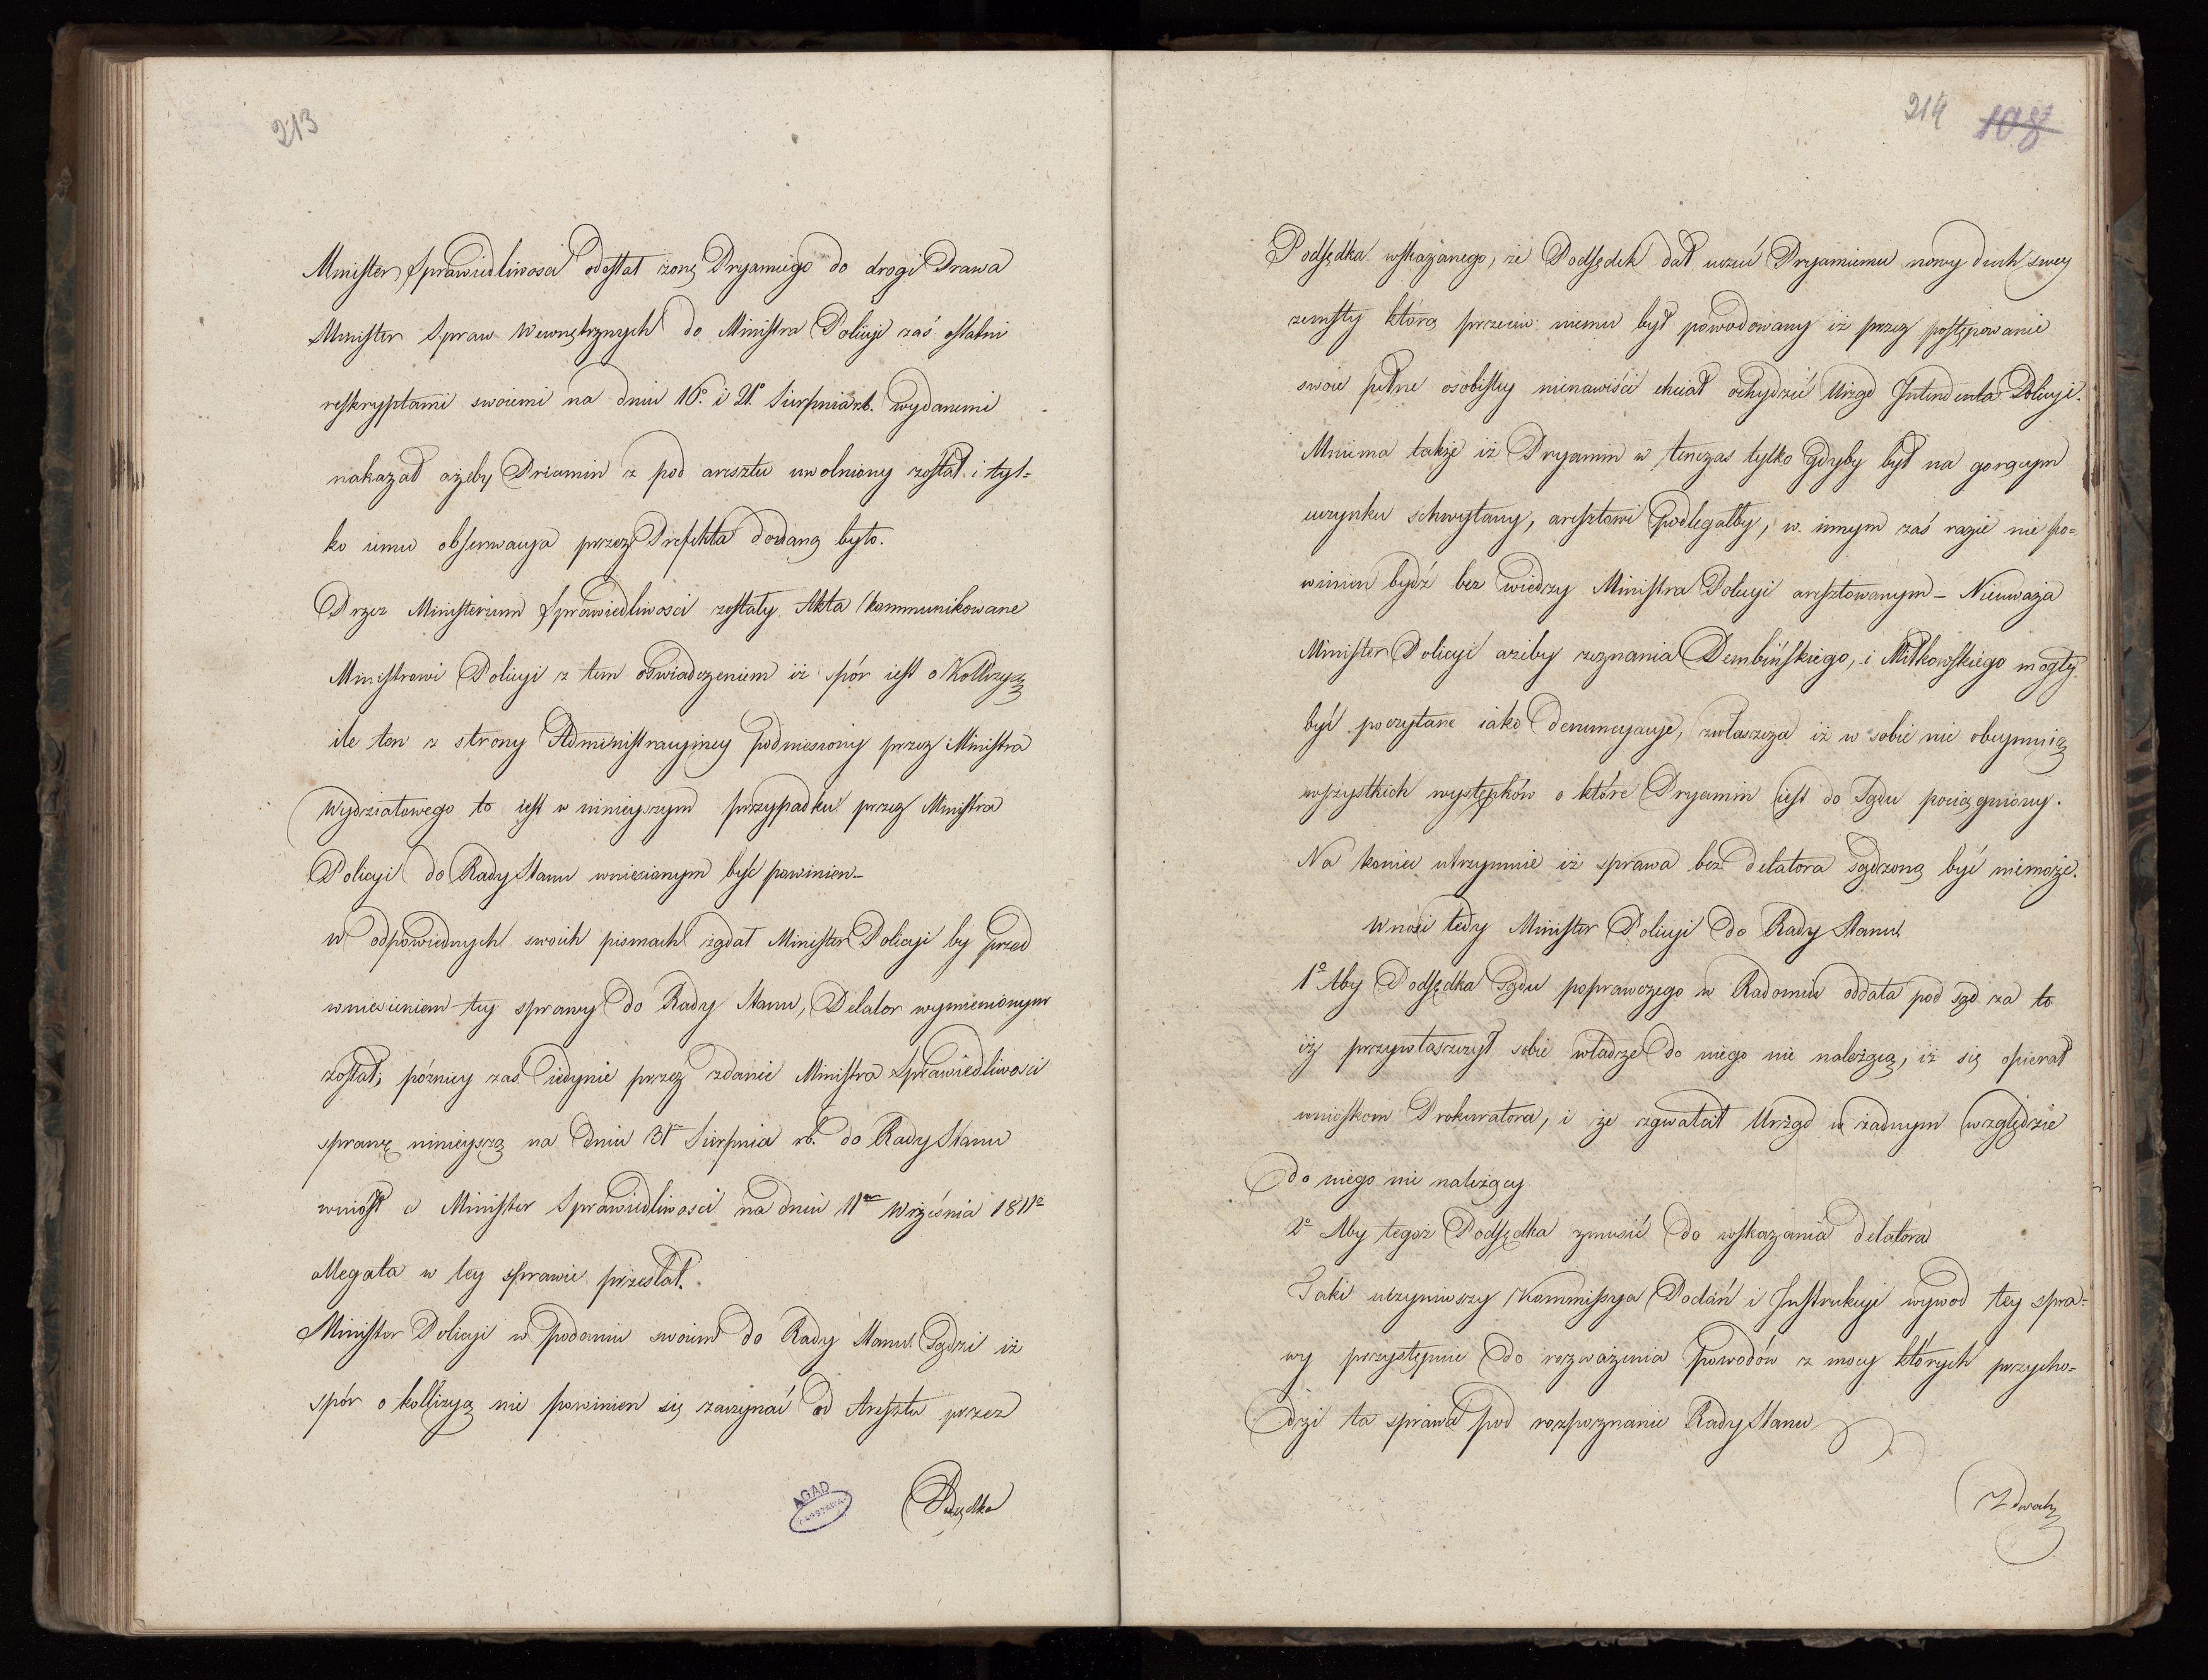 213
Minister Sprawiedliwosci odesłał żonę Pryamiego do drogi Prawa
Minister Spraw Wewnętrznych do Ministra Policyi zaś ostatni
reskryptami swoiemi na dniu 16º i 21º Sierpnia rb. wydanemi
nakazał ażeby Priamin z pod aresztu uwolniony został i tyl=
ko iemu obserwacya przez Prefekta dodaną było.
Przez Ministerium Sprawiedliwosci zostały Akta kommunikowane
Ministrowi Policyi z tem oświadczeniem iż spór iest o Kollizyą
ile ten z strony Administracyiney podniesiony przez Ministra
Wydziałowego to iest w ninieyszym przypadku przez Ministra
Policyi do Rady Stanu wniesionym być powinien_
w odpowiednych swoich pismach żądał Minister Policyi by przed
wniesieniem tey sprawy do Rady Stanu, Delator wymienionym
został; pózniey zaś iedynie przez zdanie Ministra Sprawiedliwosci
sprawę ninieyszą na dniu 31º Sierpnia rb. do Rady Stanu
wniósł a Minister Sprawiedliwosci na dniu 11m Września 1811º
allegata w tey sprawie przesłał.
Minister Policyi w podaniu swoiem do Rady Stanu Sądzi iż
spór o kollizyą nie powinien się zaczynać od Aresztu przez
Podsędka
AGAD
WARSZAWA
214 108
Podsędka wskazanego, że Podsędek dał uczuć Pryamiemu nowy duch swey
zemsty którą przeciw niemu był powodowany iż przez postępowanie
swoie pełne osobistey nienawiści chciał ochydzić Urząd Intendenta Policyi.
Mniema także iż Pryamin w tenczas tylko Gdyby był na gorącym
uczynku schwytany, aresztowi podlegałby, w innym zaś razie nie po=
winien bydź bez wiedzy Ministra Policyi aresztowanym_ Nieuważa
Minister Policyi ażeby zeznania Dembińskiego, i Miłkowskiego mogły
być poczytane iako denuncyacye, zwłaszcza iż w sobie nie obeymuią
wszystkich występków o które Pryamin iest do Sądu pociągniony.
Na koniec utrzymuie iż sprawa bez delatora sądzoną być niemoże.
Wnosi tedy Minister Policyi do Rady Stanu
1º Aby Podsędka Sądu poprawczego w Radomiu oddała pod sąd za to
iż przywłaszczył sobie władzę do niego nie należącą, iż się opierał
wnioskom Prokuratora, i że zgwałcił Urząd w żadnym względzie
do niego nie należący
2º Aby tegoż Podsędka zmusić do wskazania delatora
Taki uczyniwszy Kommissya Podań i Instrukcyi wywod tey spra=
wy przystępuie do rozważenia powodów z mocy których przycho=
dzi ta sprawa pod rozpoznanie Rady Stanu